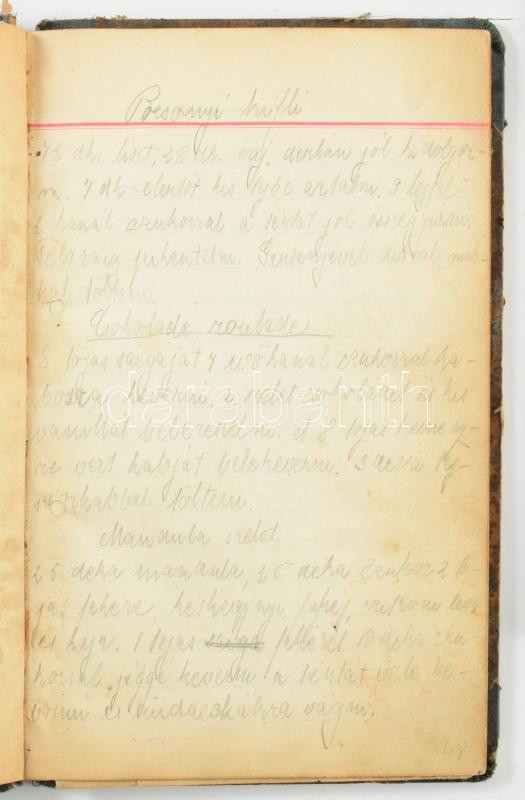 Pozsonyi kifli
42 dk. liszt, 28 dk. vaj, deszkán jól kidolgoz-
ni. 4 dk élesztőt kis tejbe áztatni. 3 tejfel
2 kanál czukorral a tésztát jól összegyúrni.
Félóráig pihentetni. Gesztenyével dióval mák-
kal tölteni.
Csokoládé roulade
8 tojás sárgáját 4 evőkanál czukorral ha-
bosra keverni, 2 szelet csokoládét és kis
vaniliát belekeverni. és 8 tojás kemény-
re vert habját belekeverni. 3 decci tej-
színhabbal tölteni.
darabanth
Mandula szelet.
25 deka mandula, 25 deka czukor 2 to-
jás fehére késhegynyi fahéj, czitrom leve
és haja. 1 tojás fehérét 10 deka czu-
korral jéggé keverni a tésztát vele be-
vonni és rudacskákra vágni.
48